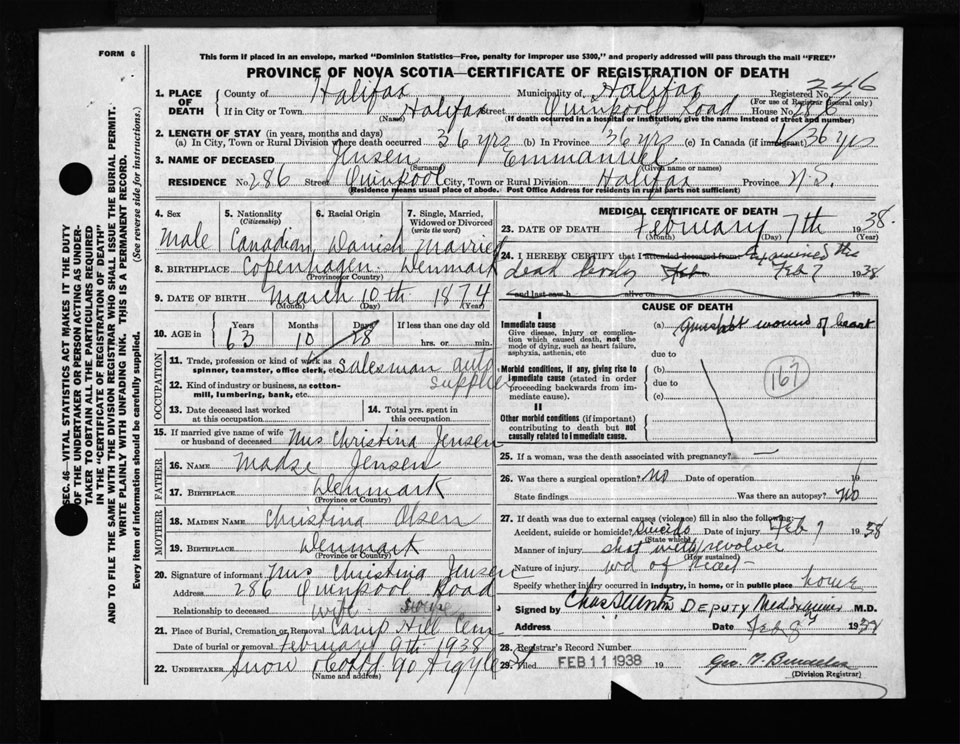 FORM 6
This form if placed in an envelope, marked "Dominion Statistics—Free, penalty for improper use $300," and properly addressed will pass through the mail "FREE"
PROVINCE OF NOVA SCOTIA—CERTIFICATE OF REGISTRATION OF DEATH
1. PLACE OF DEATH County of Halifax Municipality of Halifax Registered No. 246
(For use of Registrar General only)
If in City or Town Halifax Street Quinpool Road House No. 286
(Name) (If death occurred in a hospital or institution, give the name instead of street and number)
2. LENGTH OF STAY (in years, months and days)
(a) In City, Town or Rural Division where death occurred 36 yrs (b) In Province 36 yrs (c) In Canada (if immigrant) 36 yrs
3. NAME OF DECEASED Jensen Emmanuel
(Surname) (Given name or names)
RESIDENCE No. 286 Street Quinpool City, Town or Rural Division Halifax Province N.S.
(Residence means usual place of abode. Post Office Address for residents in rural parts not sufficient)
4. Sex Male
5. Nationality (Citizenship) Canadian
6. Racial Origin Danish
7. Single, Married, Widowed or Divorced (write the word) Married
8. BIRTHPLACE Copenhagen Denmark
(Province or Country)
9. DATE OF BIRTH March 10th 1874
(Month) (Day) (Year)
10. AGE in Years 63 Months 10 Days 28 If less than one day old hrs. or min.
OCCUPATION
11. Trade, profession or kind of work as spinner, teamster, office clerk, etc. salesman auto
12. Kind of industry or business, as cotton-mill, lumbering, bank, etc.
13. Date deceased last worked at this occupation
14. Total yrs. spent in this occupation
15. If married give name of wife or husband of deceased Mrs Christina Jensen
FATHER
16. NAME Jensen
17. BIRTHPLACE Denmark
(Province or Country)
MOTHER
18. MAIDEN NAME Christina Olsen
19. BIRTHPLACE Denmark
(Province or Country)
20. Signature of informant Mrs Christina Jensen
Address 286 Quinpool Road
Relationship to deceased wife
21. Place of Burial, Cremation or Removal Camp Hill Cem
Date of burial or removal February 9th 1938
22. UNDERTAKER Snow & Co Ltd 90 Argyle St
(Name and address)
MEDICAL CERTIFICATE OF DEATH
23. DATE OF DEATH February 7th 1938
(Month) (Day) (Year)
24. I HEREBY CERTIFY that I attended deceased from: Examined this
dead body Feb 7 1938
and last saw h alive on 19
CAUSE OF DEATH
I
Immediate cause (a) gunshot wound of heart
Give disease, injury or complication which caused death, not the mode of dying, such as heart failure, asphyxia, asthenia, etc
due to
Morbid conditions, if any, giving rise to immediate cause (stated in order proceeding backwards from immediate cause). (b)
due to
(c)
167
II
Other morbid conditions (if important) contributing to death but not causally related to immediate cause.
25. If a woman, was the death associated with pregnancy? —
26. Was there a surgical operation? No Date of operation 19
State findings Was there an autopsy? No
27. If death was due to external causes (violence) fill in also the following:
Accident, suicide or homicide? Suicide Date of injury Feb 7 1938
(State which)
Manner of injury shot with revolver
(How sustained)
Nature of injury wd of heart
Specify whether injury occurred in industry, in home, or in public place home
Signed by DEPUTY Med Examiner M.D.
Address Date Feb 8 1938
28. Registrar's Record Number
29. Filed FEB 11 1938 19
(Division Registrar)
SEC. 46—VITAL STATISTICS ACT MAKES IT THE DUTY
OF THE UNDERTAKER OR PERSON ACTING AS UNDER-
TAKER TO OBTAIN ALL THE PARTICULARS REQUIRED
IN THE "CERTIFICATE OF REGISTRATION OF DEATH"
AND TO FILE THE SAME WITH THE DIVISION REGISTRAR WHO SHALL ISSUE THE BURIAL PERMIT.
WRITE PLAINLY WITH UNFADING INK. THIS IS A PERMANENT RECORD.
Every item of information should be carefully supplied. (See reverse side for instructions.)